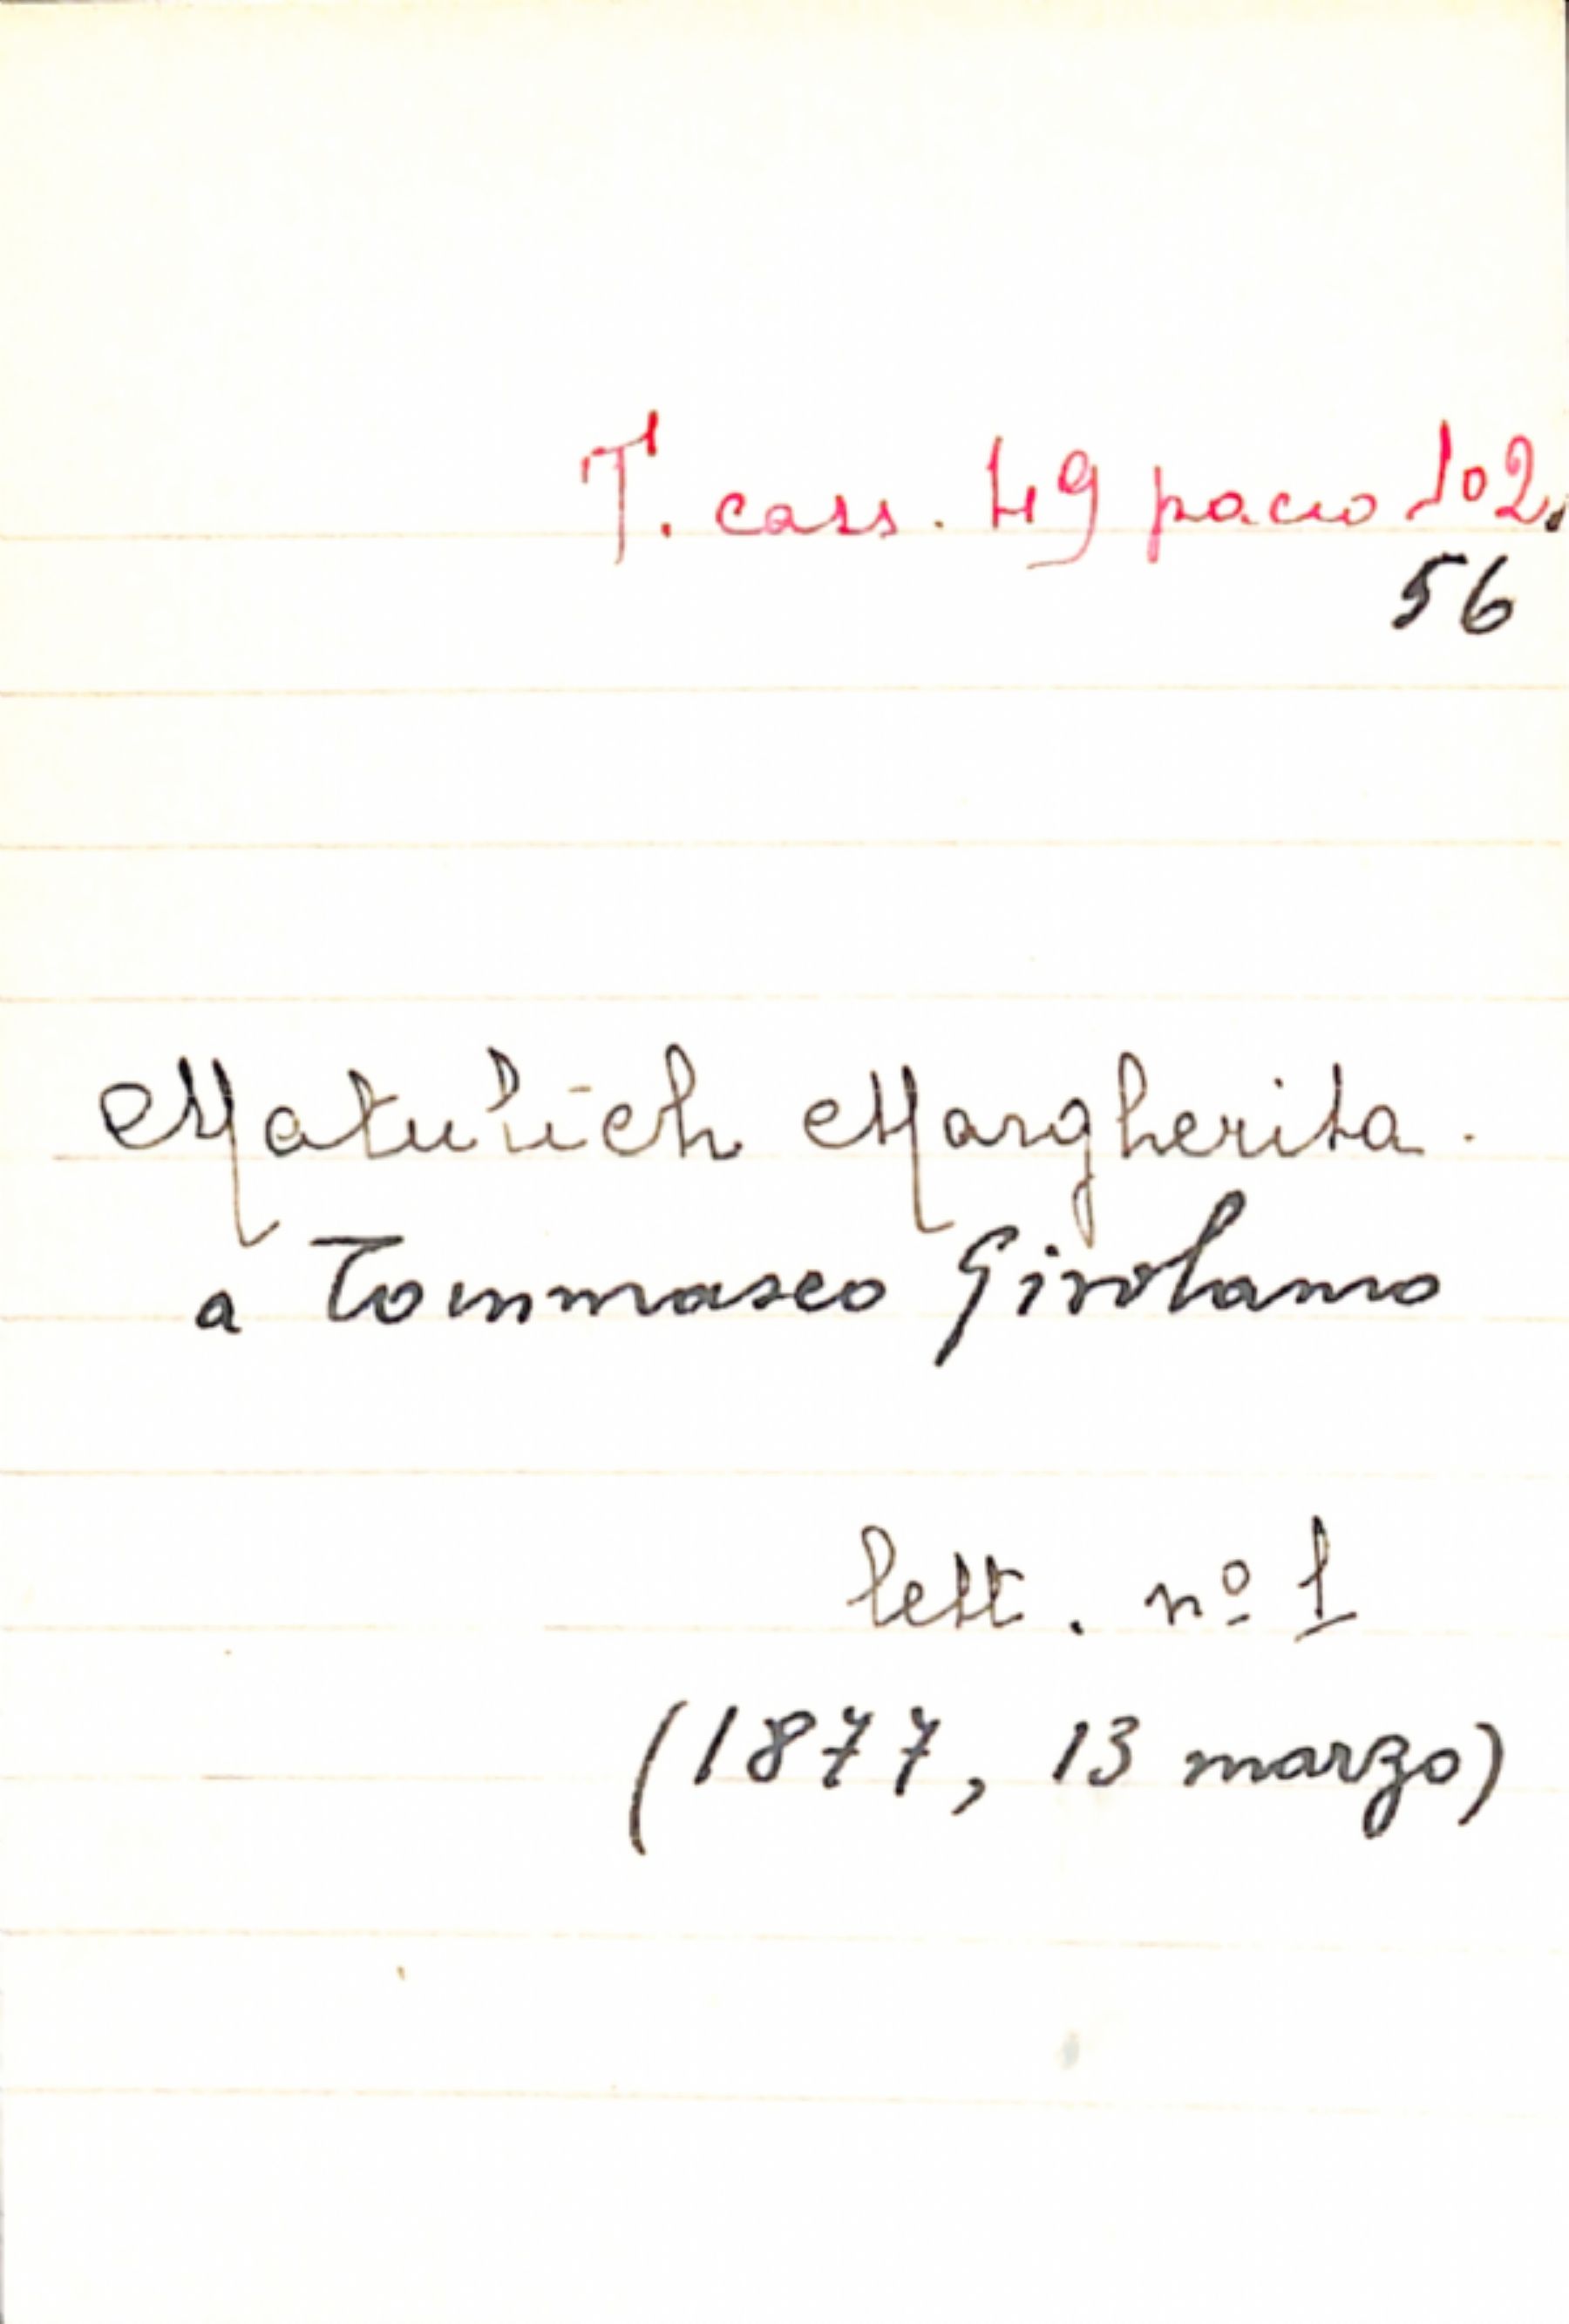 T. cass. 49 pacco 102,
56
Matulich Margherita.
a Tommaseo Girolamo
lett. nº 1
(1877, 13 marzo)